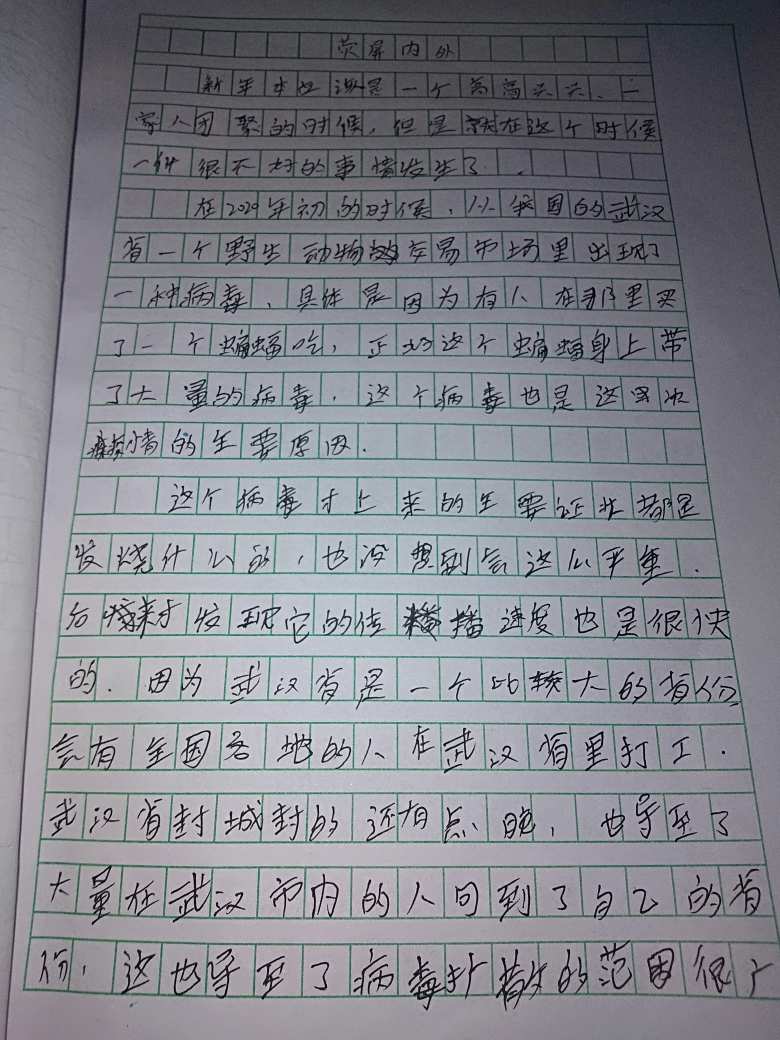 荧屏内外
新年本应该是一个高高兴兴、一
家人团聚的时候,但是就在这个时候
一件很不好的事情发生了.
在2029年初的时候,从我国的武汉
省一个野生动物的交易市场里出现了
一种病毒、具体是因为有人在那里买
了一个蝙蝠吃,正好这个蝙蝠身上带
了大量的病毒.这个病毒也是这次
疫情的主要原因.
这个病毒才上来的主要证状都是
发烧什么的,也没想到会这么严重.
后来才发现它的传播速度也是很快
的.因为武汉省是一个比较大的省份
会有全国各地的人在武汉省里打工.
武汉省封城封的还有点晚,也导至了
大量在武汉市内的人回到了自己的省
份,这也导至了病毒扩散的范围很广